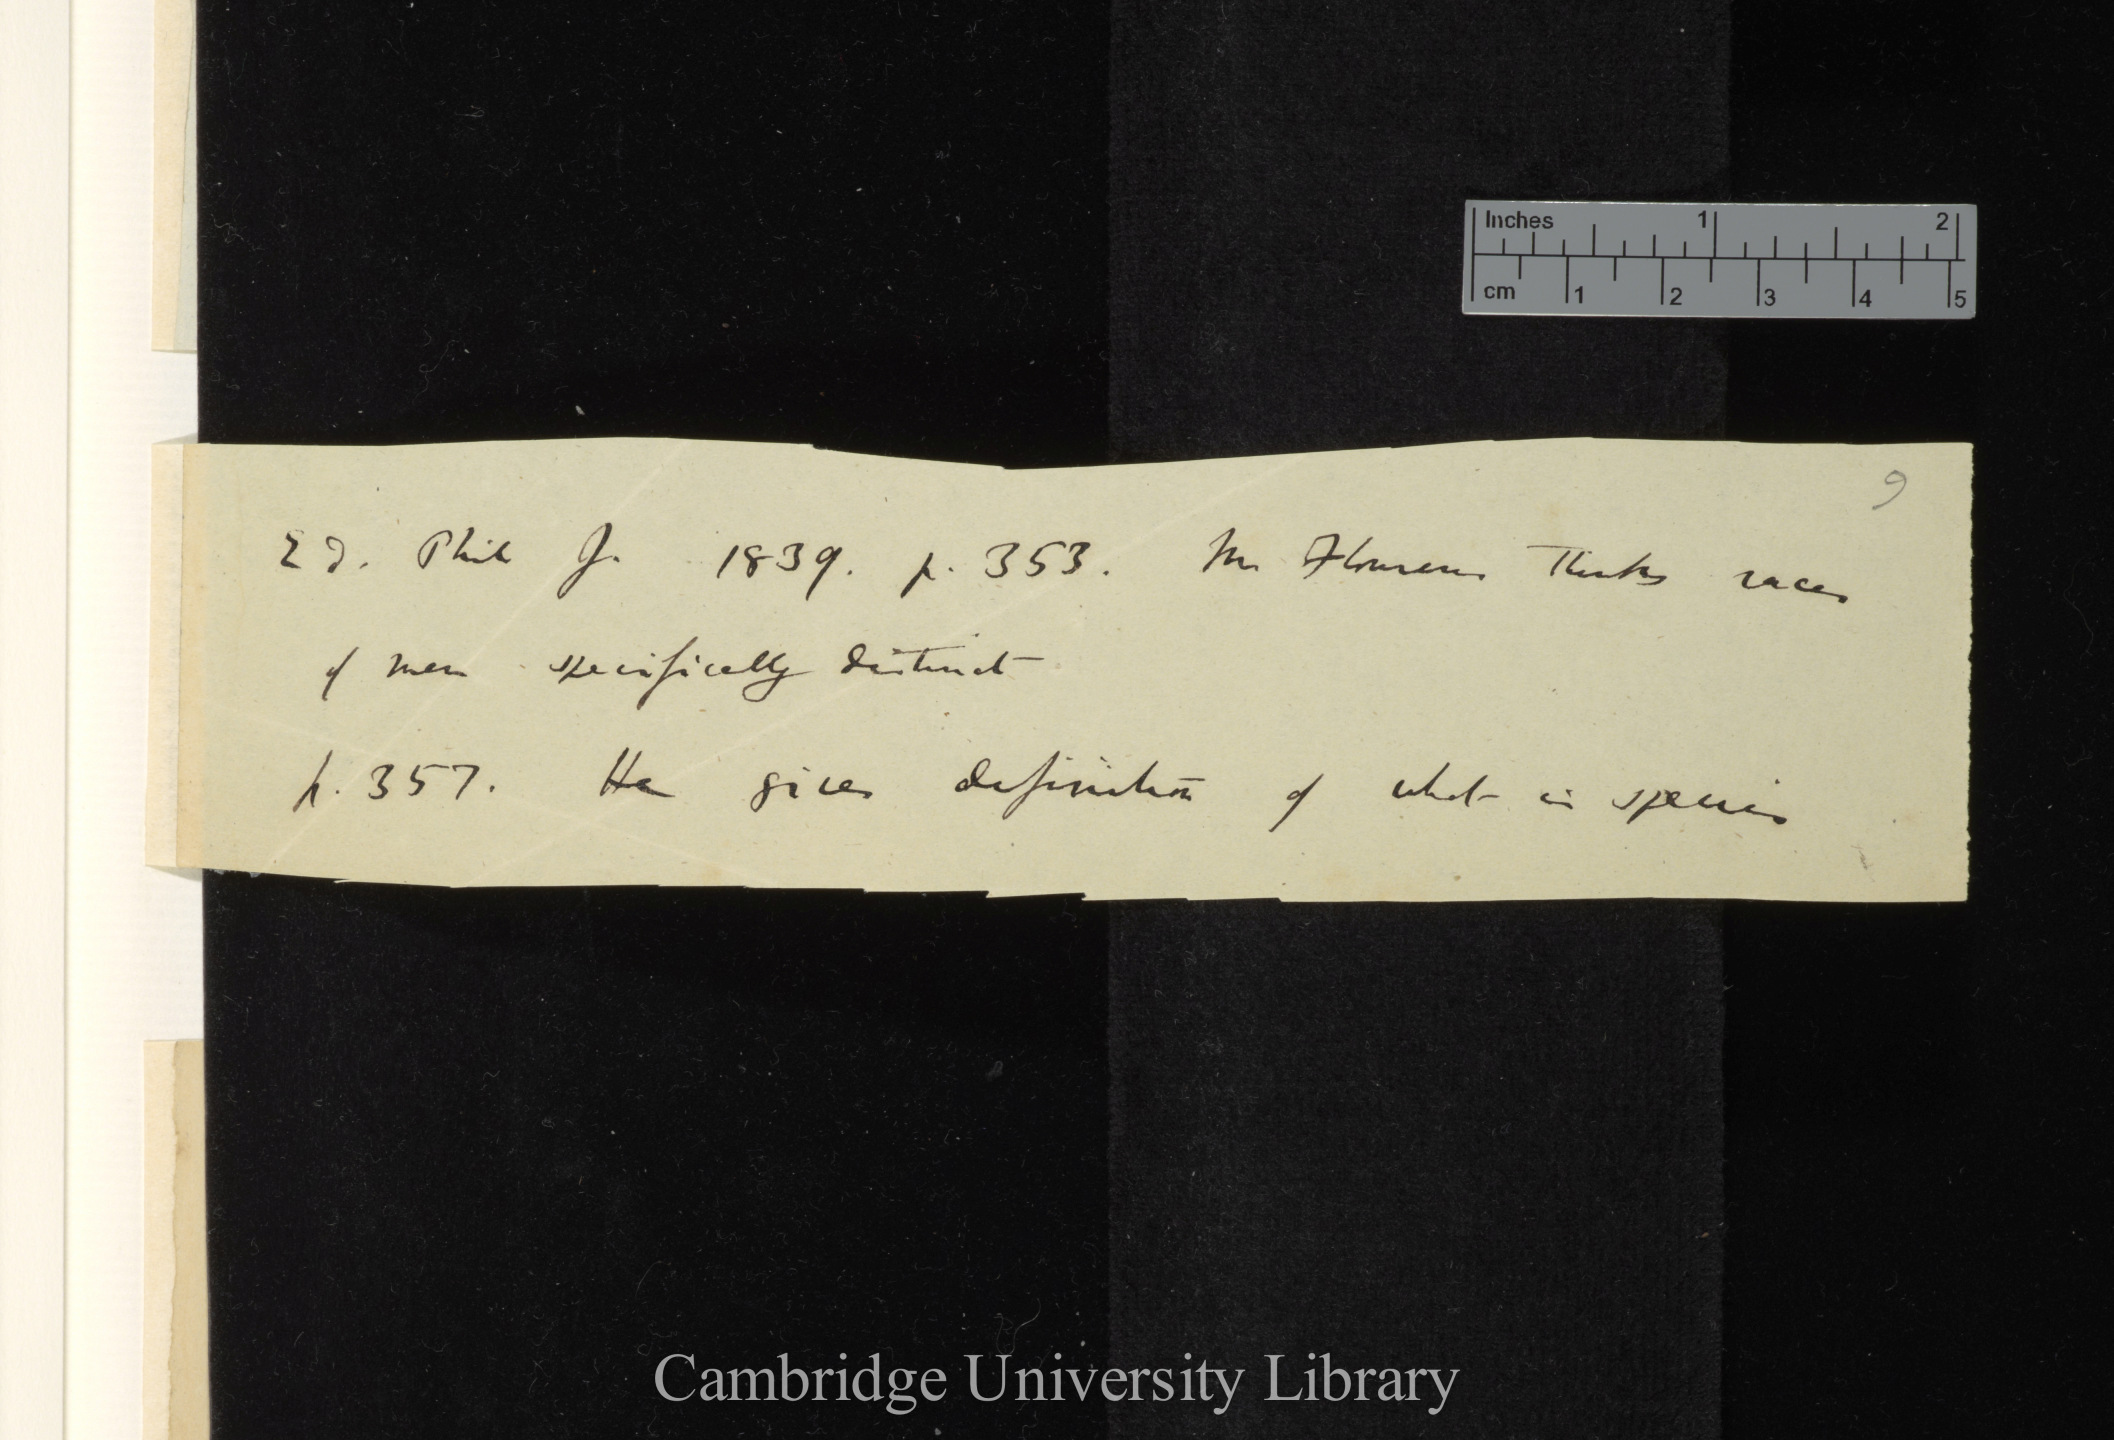 Inches 1 2
cm 1 2 3 4 5
9
Ed. Phil J. 1839. p. 353. Mr Flourens thinks races
of men specifically distinct
p. 357. He gives definition of what is species
Cambridge University Library